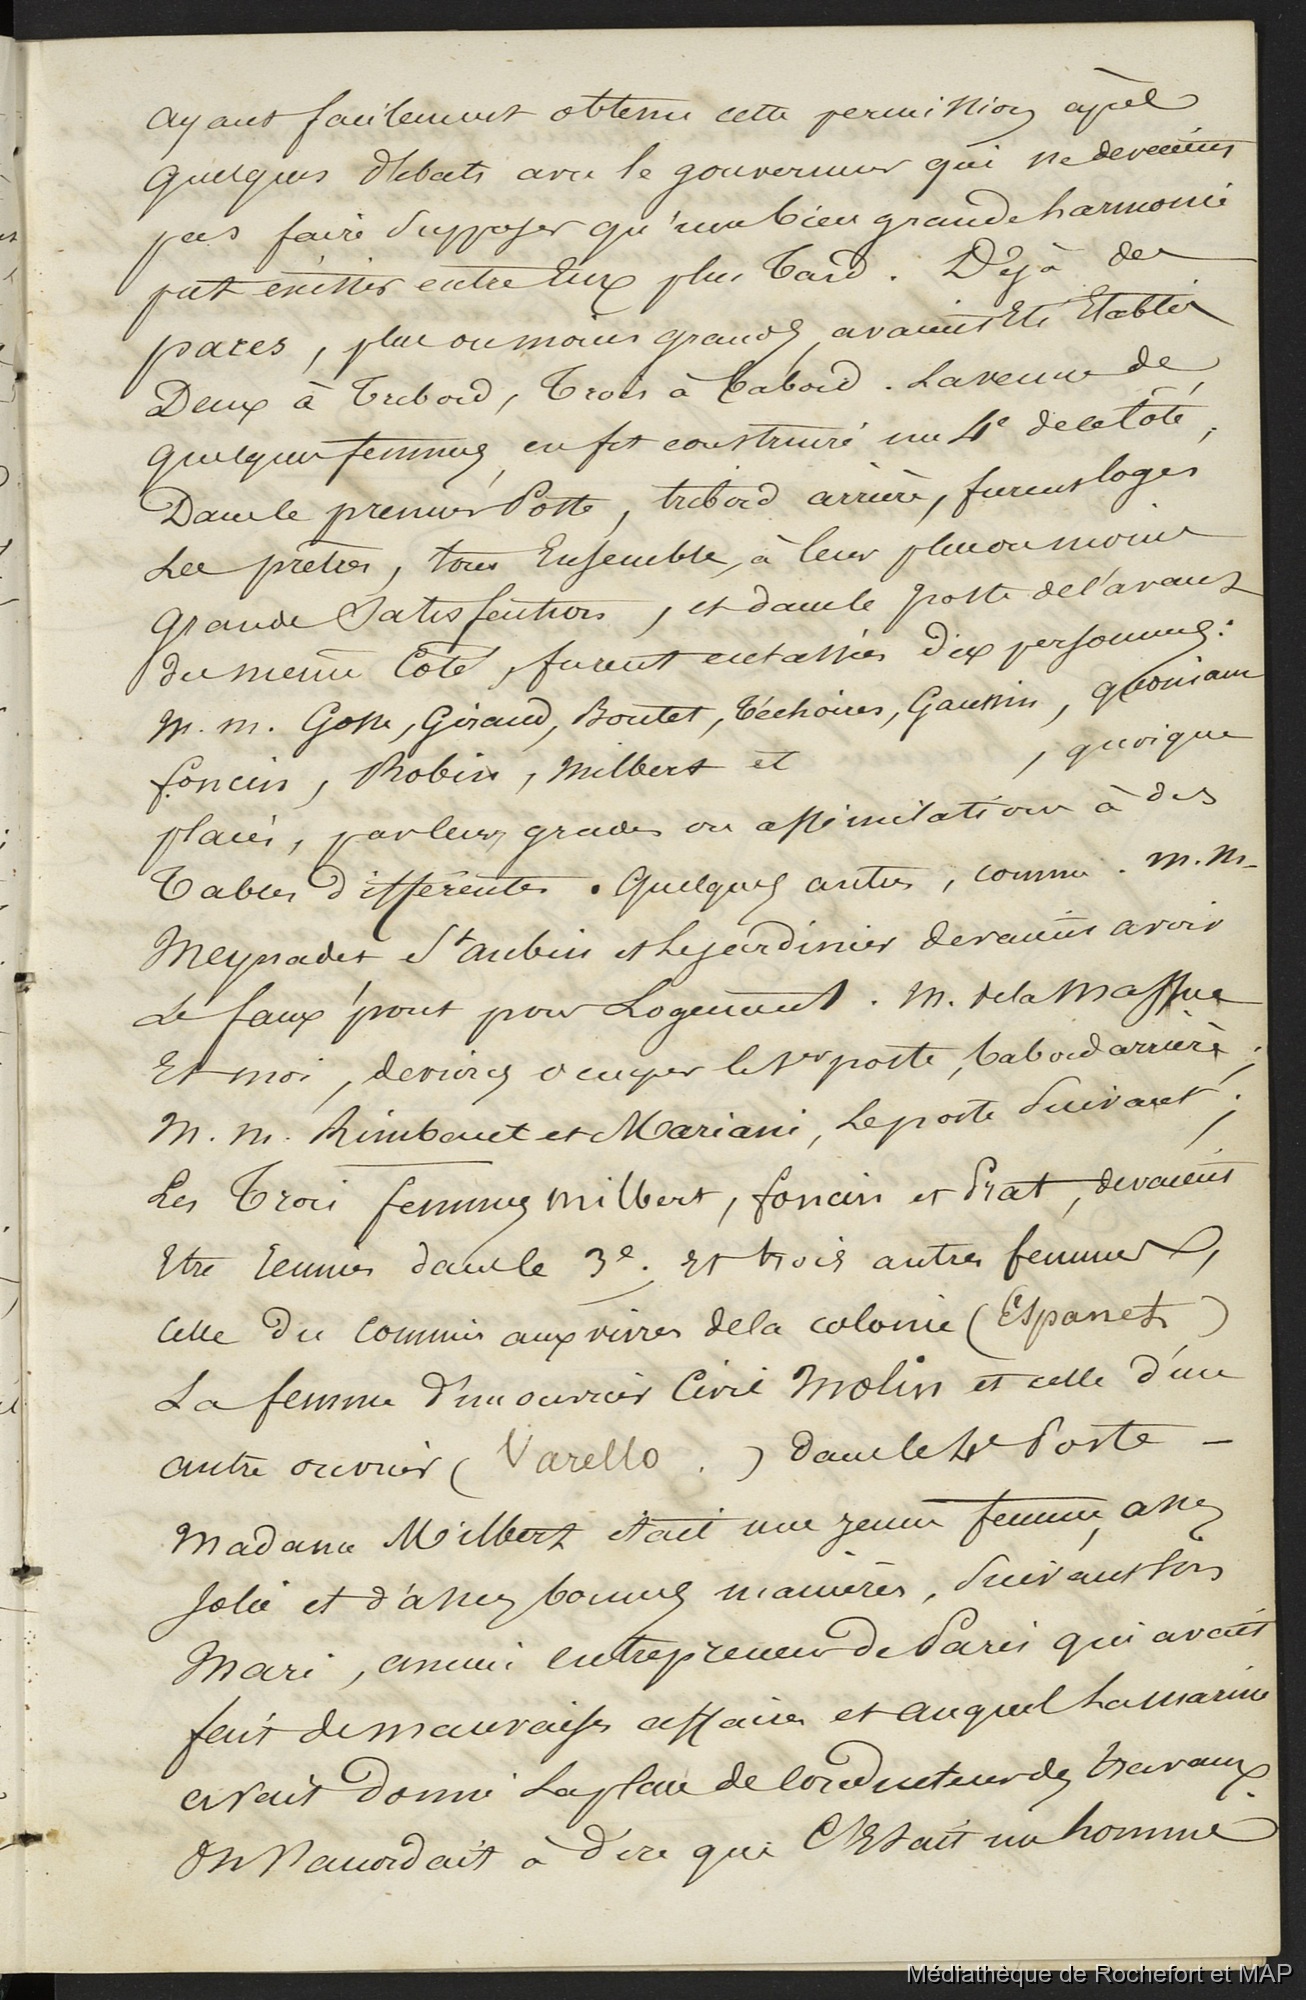 ayant facilement obtenu cette permission après
quelques débats avec le gouverneur qui ne devaient
pas faire supposer qu'une bien grande harmonie
put exister entre Eux plus tard. Déjà des
parcs, plus ou moins grands, avaient Eté Etablis
Deux à tribord, trois à babord. La venue de
quelques femmes, en fit construire un 4e de ce côté,
Dans le premier Poste, tribord arrière, furent logés
Les prêtres, tous Ensemble, à leur plus ou moins
grande Satisfaction, et dans le poste de l'avant
du même Côté, furent entassées dix personnes:
M. M. Gosse, Giraud, Boutet, Téchoires, Gaussin,
foncin, Robin, Milbert et , quoique
placés, par leurs grades ou assimilations à des
Tables différentes. Quelques autres, comme M. M.
Meynadet St Aubin et Lejardinier devaient avoir
Le faux pont pour Logement. M. de la Massue
Et moi, devions occuper le 1er poste, babord arrière;
M. M. Rimbaut et Mariani, Le poste Suivant;
Les Trois femmes Milbert, foncin et Prat, devaient
Etre réunies dans le 3e. Et trois autres femmes,
celle Du commis aux vivres de la colonie (Espanet)
La femme d'un ouvrier Civil Molin et celle d'un
autre ouvrier (Varello.) dans le 4e Poste –
Madame Milbert était une jeune femme, assez
Jolie et d'assez bonnes manières, Suivant son
Mari, ancien entrepreneur de Paris qui avait
fait de mauvaises affaires et auquel La marine
avait donné La place de Conducteur des travaux.
On s'accordait à dire que C'Etait un homme
Médiathèque de Rochefort et MAP